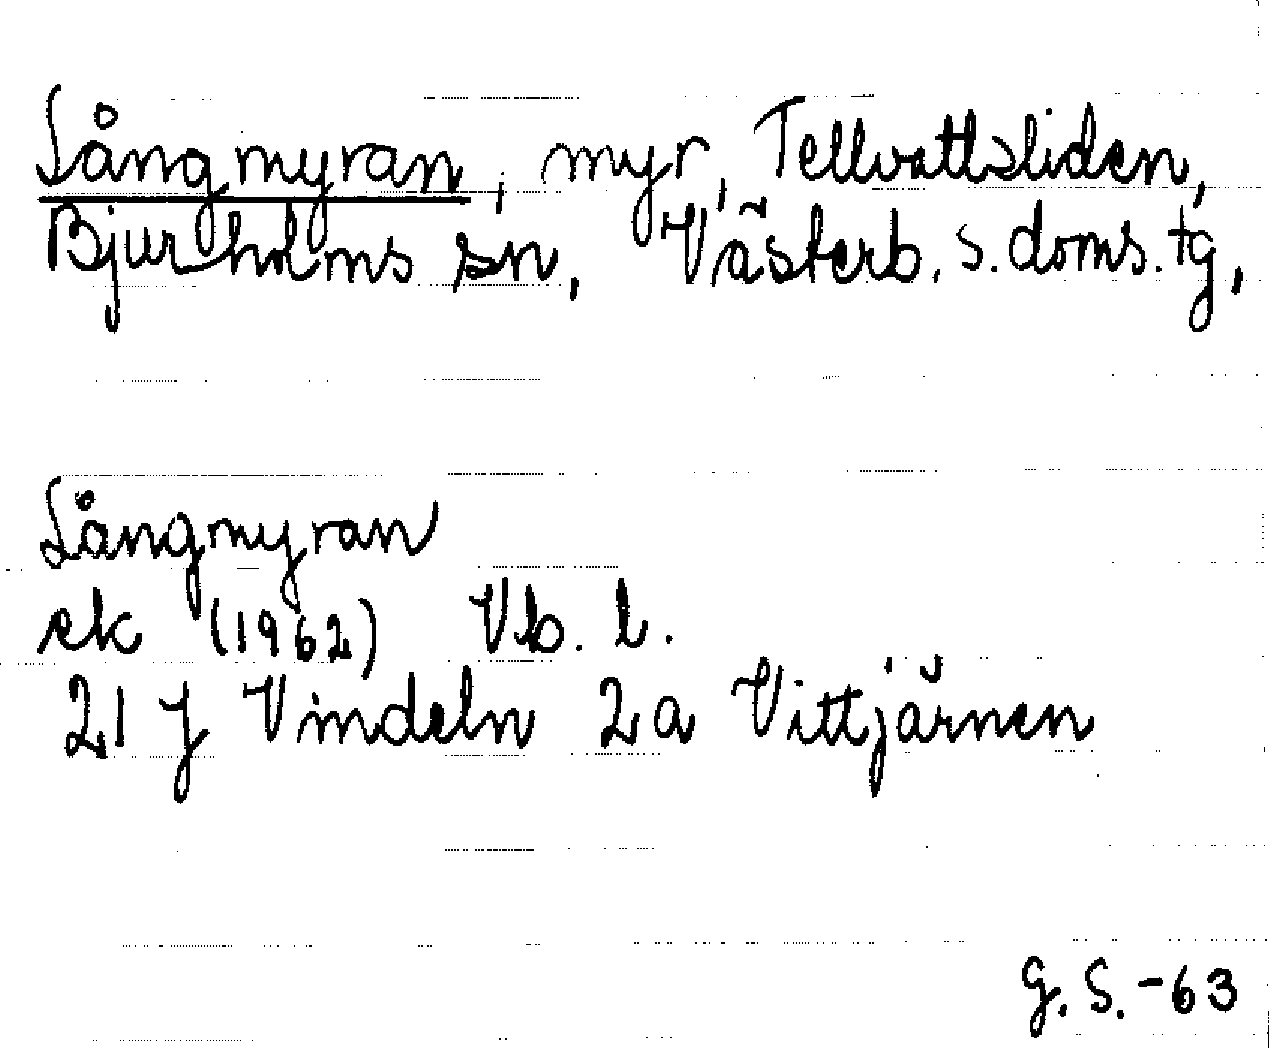 Långmyran, myr, Tellvattsliden,
Bjurholms sn, Västerb. s. doms. tg,
Långmyran
ek (1962) Vb. l.
21 J Vindeln 2a Vittjärnen
G. S. -63